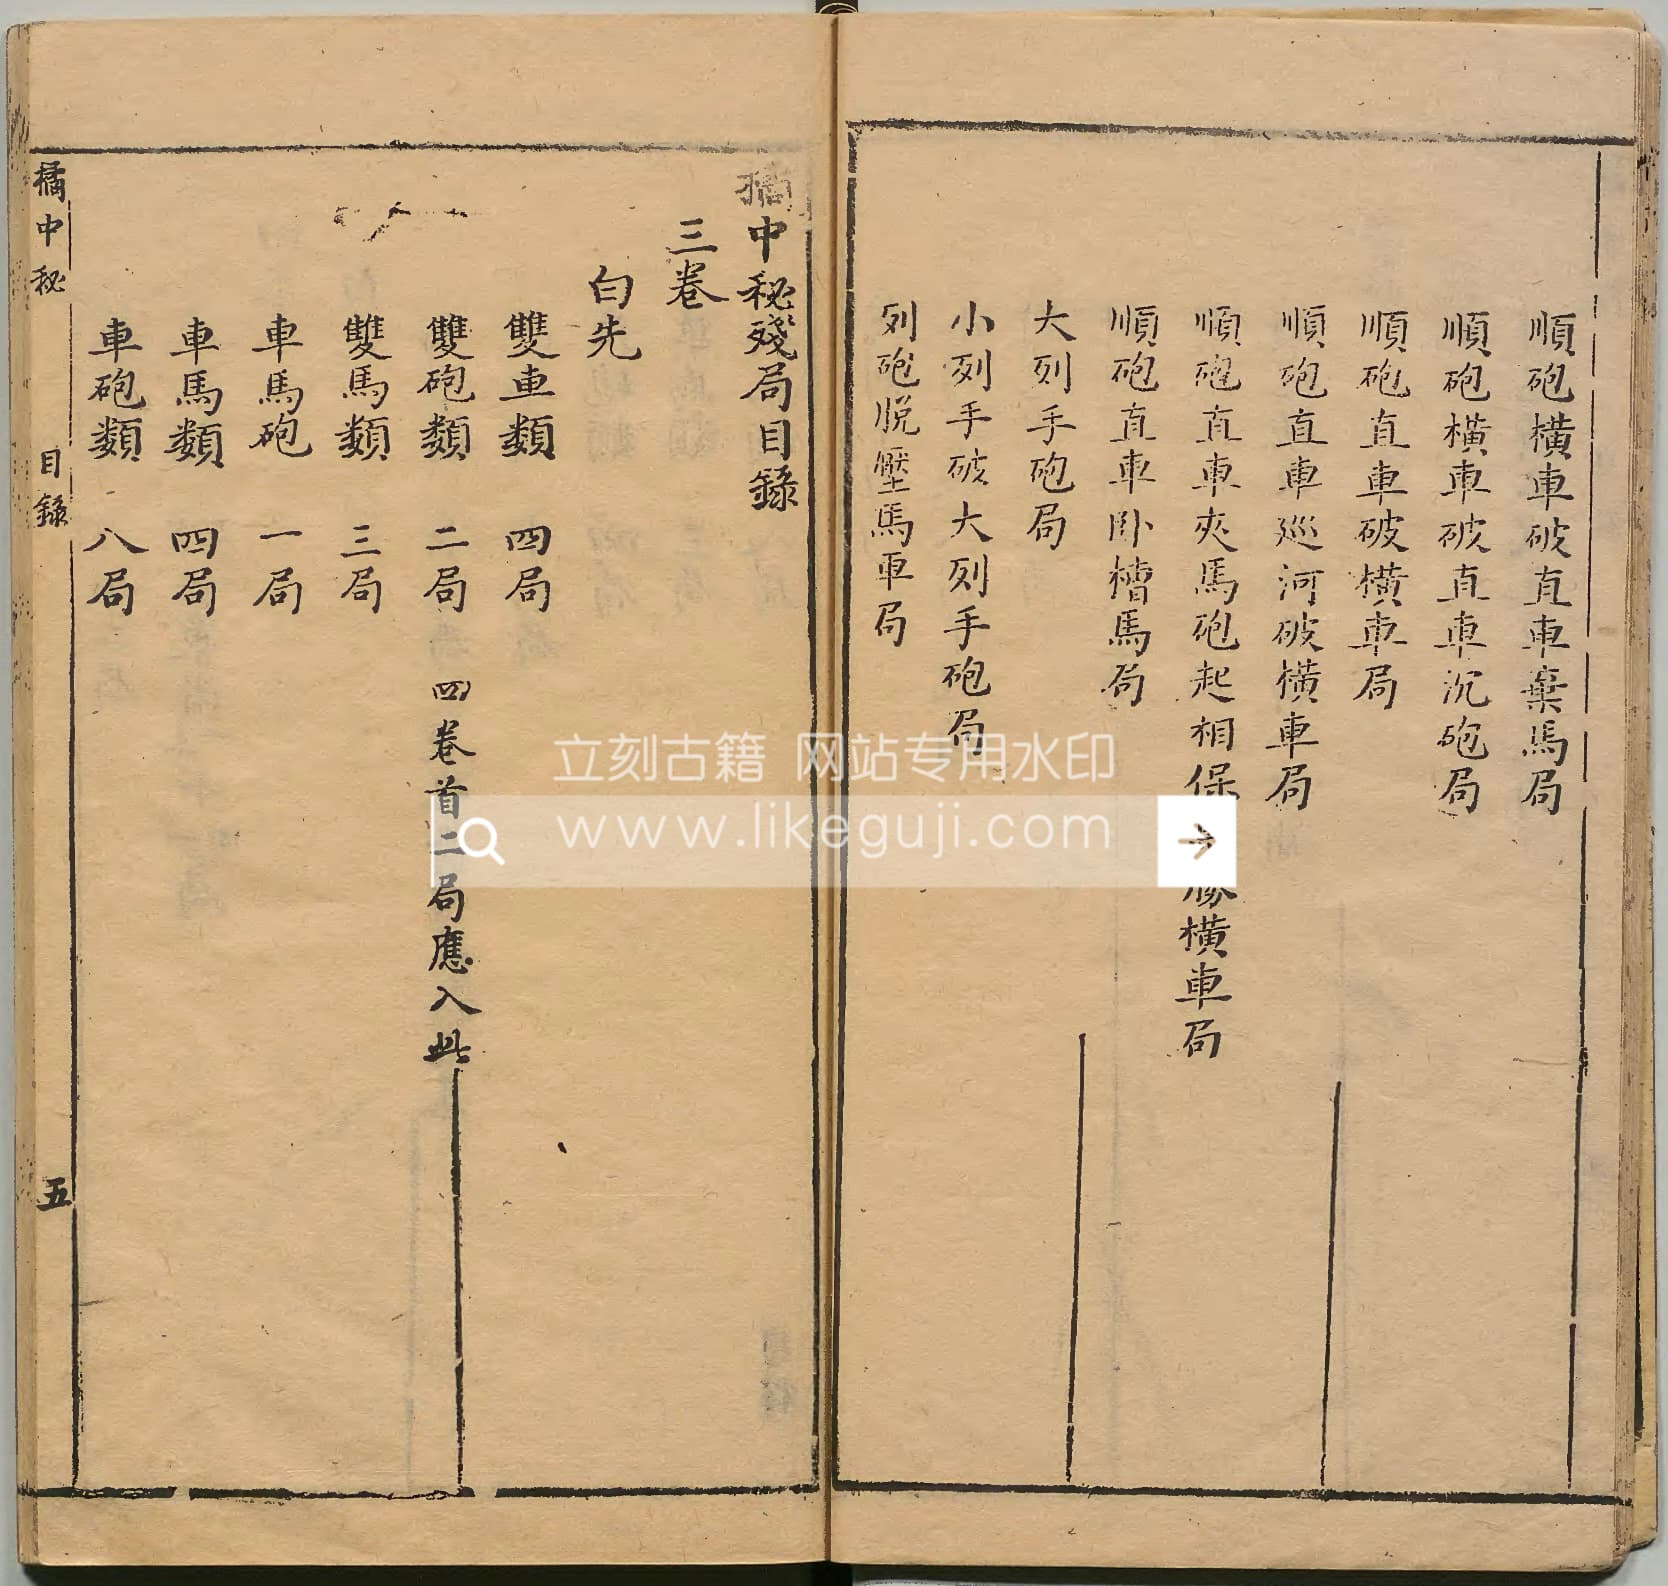 順砲橫車破直車棄馬局
順砲橫車破直車沉砲局
順砲直車破橫車局
順砲直車巡河破橫車局
順砲直車夾馬砲起相保勝橫車局
順砲直車卧槽馬局
大列手砲局
小列手破大列手砲局
列砲脱壓馬車局
橘中秘殘局目錄
三卷
白先
雙車類 四局
雙砲類 二局 四卷首二局應入此
雙馬類 三局
車馬砲 一局
車馬類 四局
車砲類 八局
橘中秘 目錄 五
立刻古籍 网站专用水印
www.likeguji.com